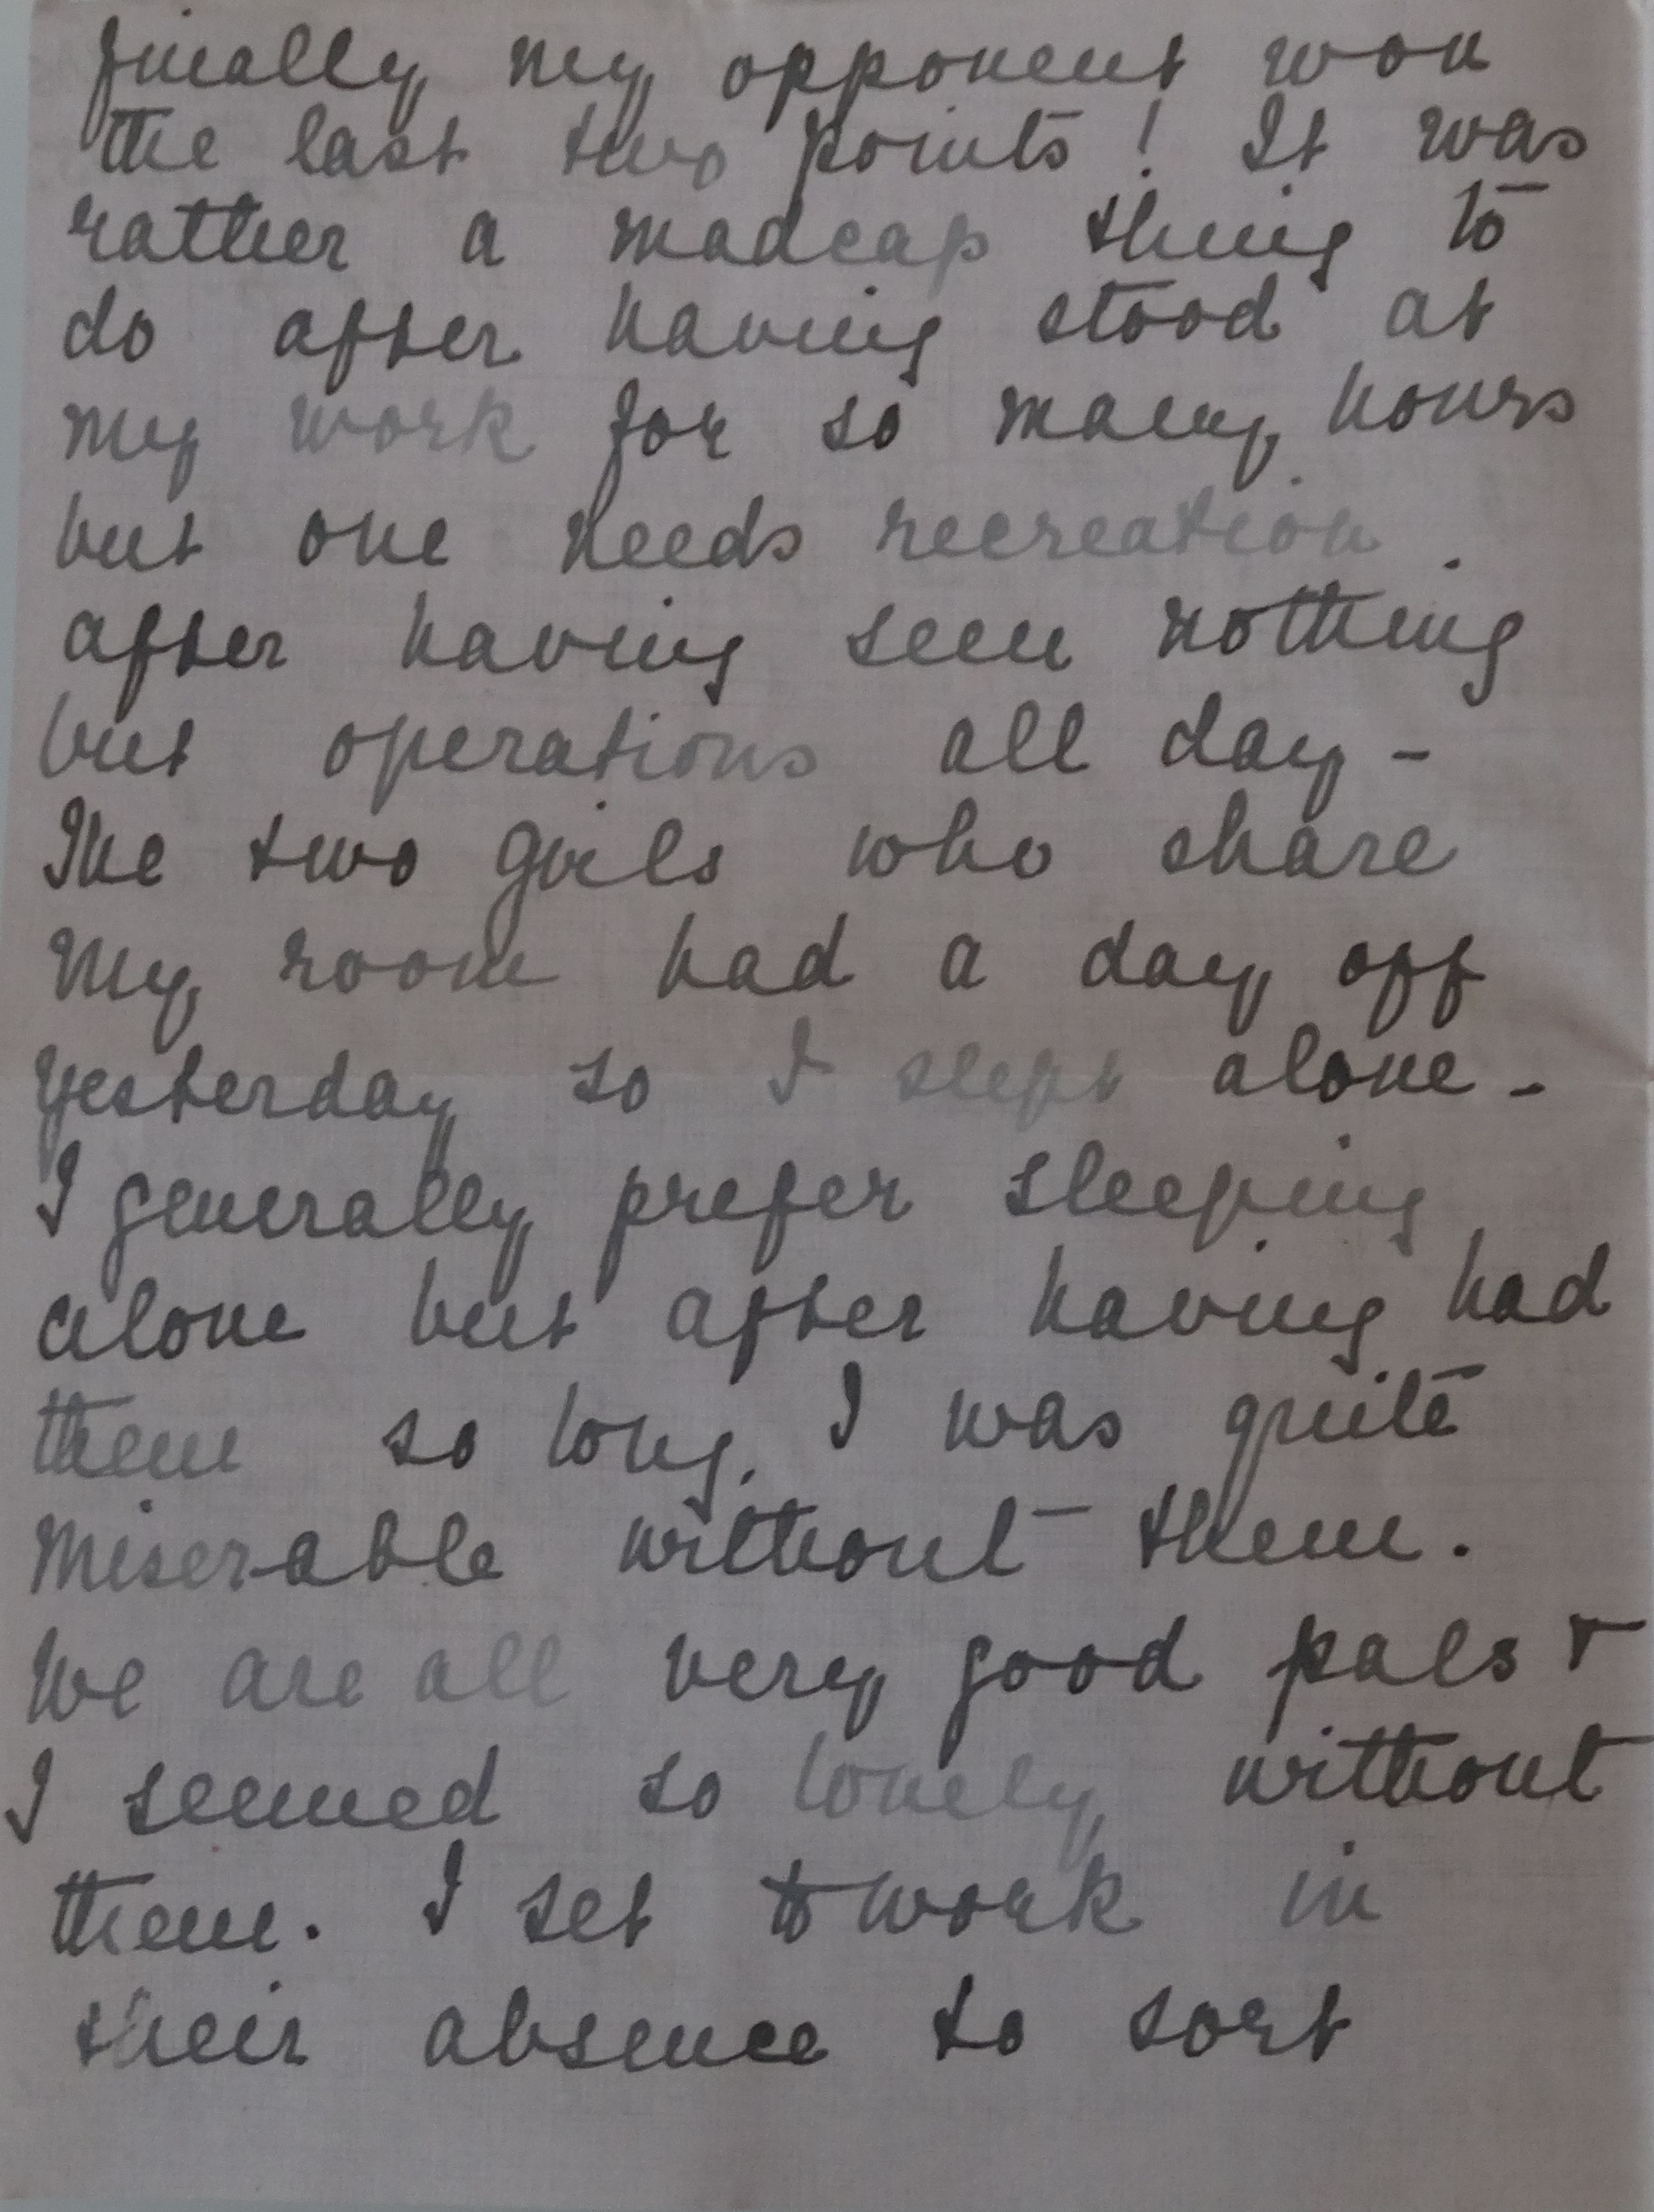 finally my opponent won
the last two points! It was
rather a madcap thing to
do after having stood at
my work for so many hours
but one needs recreation.
after having seen nothing
but operations all day -
The two girls who share
my room had a day off
yesterday so I slept alone -
I generally prefer sleeping
alone but after having had
them so long, I was quite
miserable without them.
We are all very good pals &
I seemed so lonely without
them. I set to work in
their absence to sort